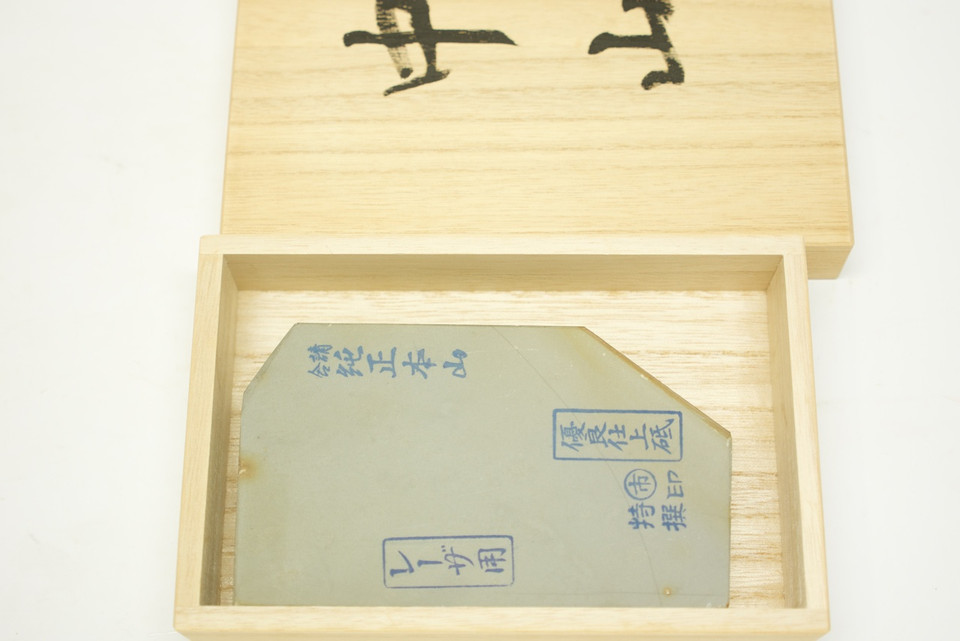 中山
請合
純正本山
優良仕上砥
市印
特撰
レーザ用